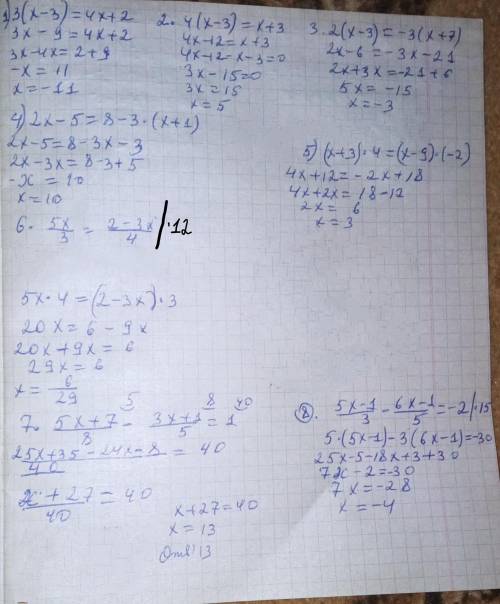 1) 3(x-3)=4x+2
3x-9=4x+2
3x-4x=2+9
-x=11
x=-11
2. 4(x-3)=x+3
4x-12=x+3
4x-12-x-3=0
3x-15=0
3x=15
x=5
3. 2(x-3)=-3(x+7)
2x-6=-3x-21
2x+3x=-21+6
5x=-15
x=-3
4) 2x-5=8-3·(x+1)
2x-5=8-3x-3
2x-3x=8-3+5
-x=10
x=10
5) (x+3)·4=(x-9)·(-2)
4x+12=-2x+18
4x+2x=18-12
2x=6
x=3
6. 5x/3 = 2-3x/4 /·12
5x·4=(2-3x)·3
20x=6-9x
20x+9x=6
29x=6
x=6/29
5 8 40
7. 5x+7/8 - 3x+1/5 = 1
25x+35-24x-8/40 = 40
x+27/40 = 40
x+27=40
x=13
Отв: 13
8. 5x-1/3 - 6x-1/5 = -2 |·15
5·(5x-1)-3(6x-1)=-30
25x-5-18x+3+30
7x-2=-30
7x=-28
x=-4